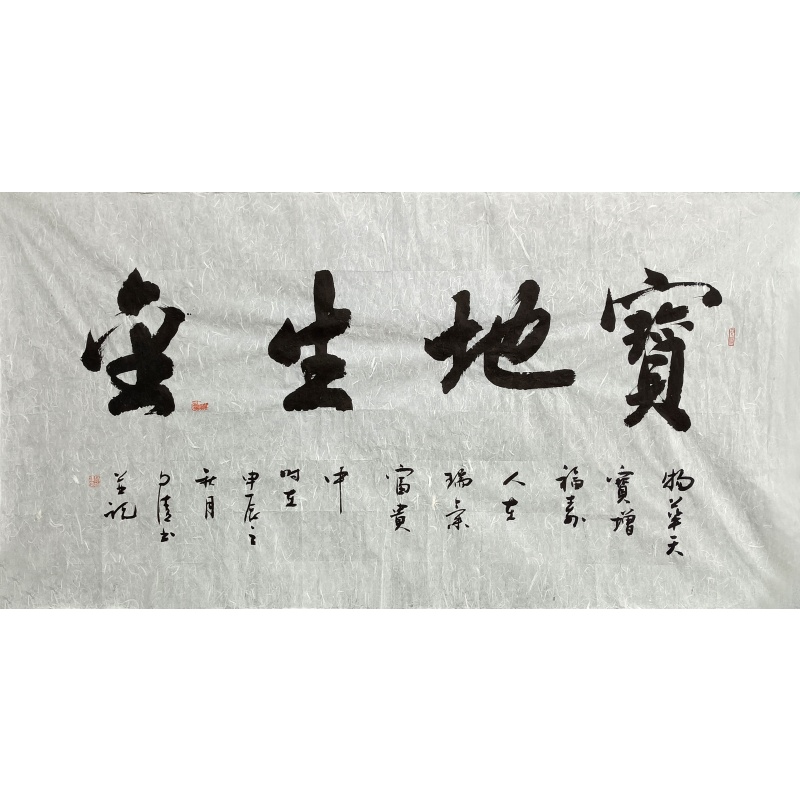 寶地生金
物華天
寶增
福壽
人在
瑞氣
富貴
中
時在
甲辰之
秋月
清书
並記